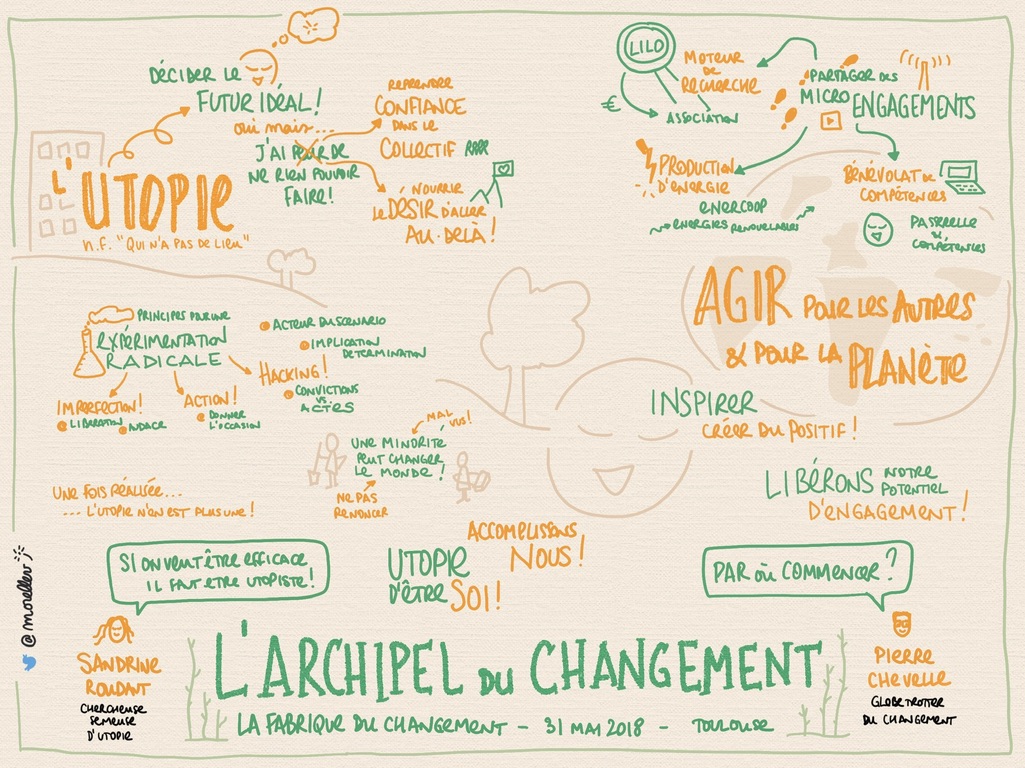 DÉCIDER LE
FUTUR IDÉAL!
oui mais...
J'AI PEUR DE
NE RIEN POUVOIR
FAIRE!
REPRENDRE
CONFIANCE
DANS LE
COLLECTIF
NOURRIR
LE DÉSIR D'ALLER
AU-DELÀ!
L'UTOPIE
n.f. "QUI N'A PAS DE LIEU"
PRINCIPES POUR UNE
EXPÉRIMENTATION
RADICALE
IMPERFECTION!
LIBÉRATION
AUDACE
ACTION!
DONNER
L'OCCASION
HACKING!
CONVICTIONS
VS.
ACTES
ACTEUR DU SCENARIO
IMPLICATION
DETERMINATION
MAL
VUS!
UNE MINORITÉ
PEUT CHANGER
LE MONDE!
NE PAS
RENONCER
UNE FOIS RÉALISÉE...
... L'UTOPIE N'EN EST PLUS UNE!
LILO
MOTEUR
DE
RECHERCHE
€
ASSOCIATION
PARTAGER DES
MICRO ENGAGEMENTS
PRODUCTION
D'ENERGIE
ENERCOOP
ENERGIES RENOUVELABLES
BÉNÉVOLAT DE
COMPÉTENCES
PASSERELLE
&
COMPÉTENCES
AGIR POUR LES AUTRES
& POUR LA PLANÈTE
INSPIRER
CRÉER DU POSITIF!
LIBÉRONS NOTRE
POTENTIEL
D'ENGAGEMENT!
SI ON VEUT ÊTRE EFFICACE
IL FAUT ETRE UTOPISTE!
SANDRINE
ROUDAUT
CHERCHEUSE
SEMEUSE
D'UTOPIE
UTOPIE
D'ÊTRE SOI!
ACCOMPLISSONS
NOUS!
PAR OÙ COMMENCER?
PIERRE
CHEVELLE
GLOBE TROTTER
DU CHANGEMENT
L'ARCHIPEL DU CHANGEMENT
LA FABRIQUE DU CHANGEMENT - 31 MAI 2018 - TOULOUSE
@morellerv